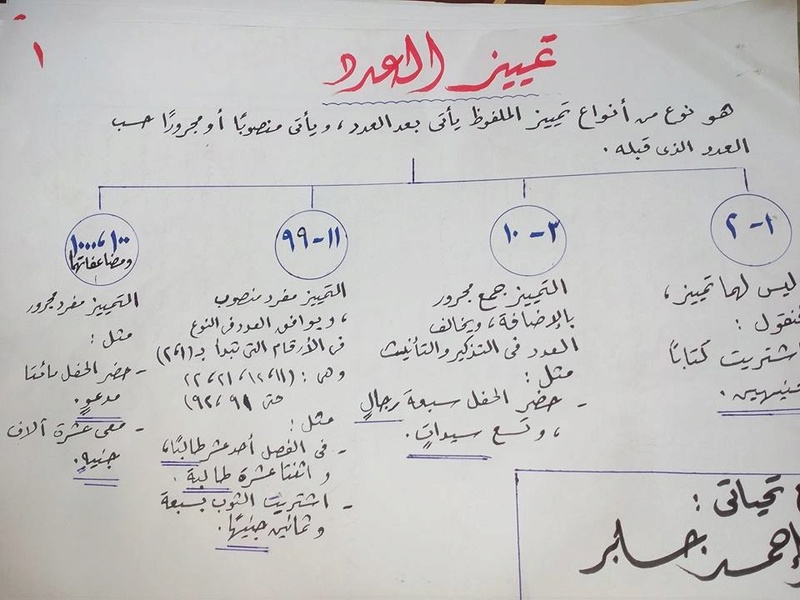 ١
تمييز العدد
هو نوع من أنواع تمييز الملفوظ يأتى بعد العدد، ويأتى منصوبًا أو مجرورًا حسب
العدد الذى قبله.
١-٢
ليس لهما تمييز،
فنقول:
اشتريت كتابًا
جنيهين.
٣-١٠
التمييز جمع مجرور
بالإضافة، ويخالف
العدد فى التذكير والتأنيث
مثل:
- حضر الحفل سبعة رجالٍ
، وتسع سيداتٍ.
١١-٩٩
التمييز مفرد منصوب
، ويوافق العدد فى النوع
فى الأرقام التى تبدأ بـ(١،٢)
وهى: (١١، ١٢، ٢١، ٢٢
حتى ٩١، ٩٢)
مثل:
- فى الفصل أحد عشر طالبًا،
و اثنتا عشرة طالبة.
- اشتريت الثوب بسبعة
وثمانين جنيهًا.
١٠٠، ١٠٠٠
ومضاعفاتها
التمييز مفرد مجرور
مثل:
- حضر الحفل مائتا
مدعوٍ.
- معى عشرة آلاف
جنيهٍ.
تحياتى:
أحمد جابر